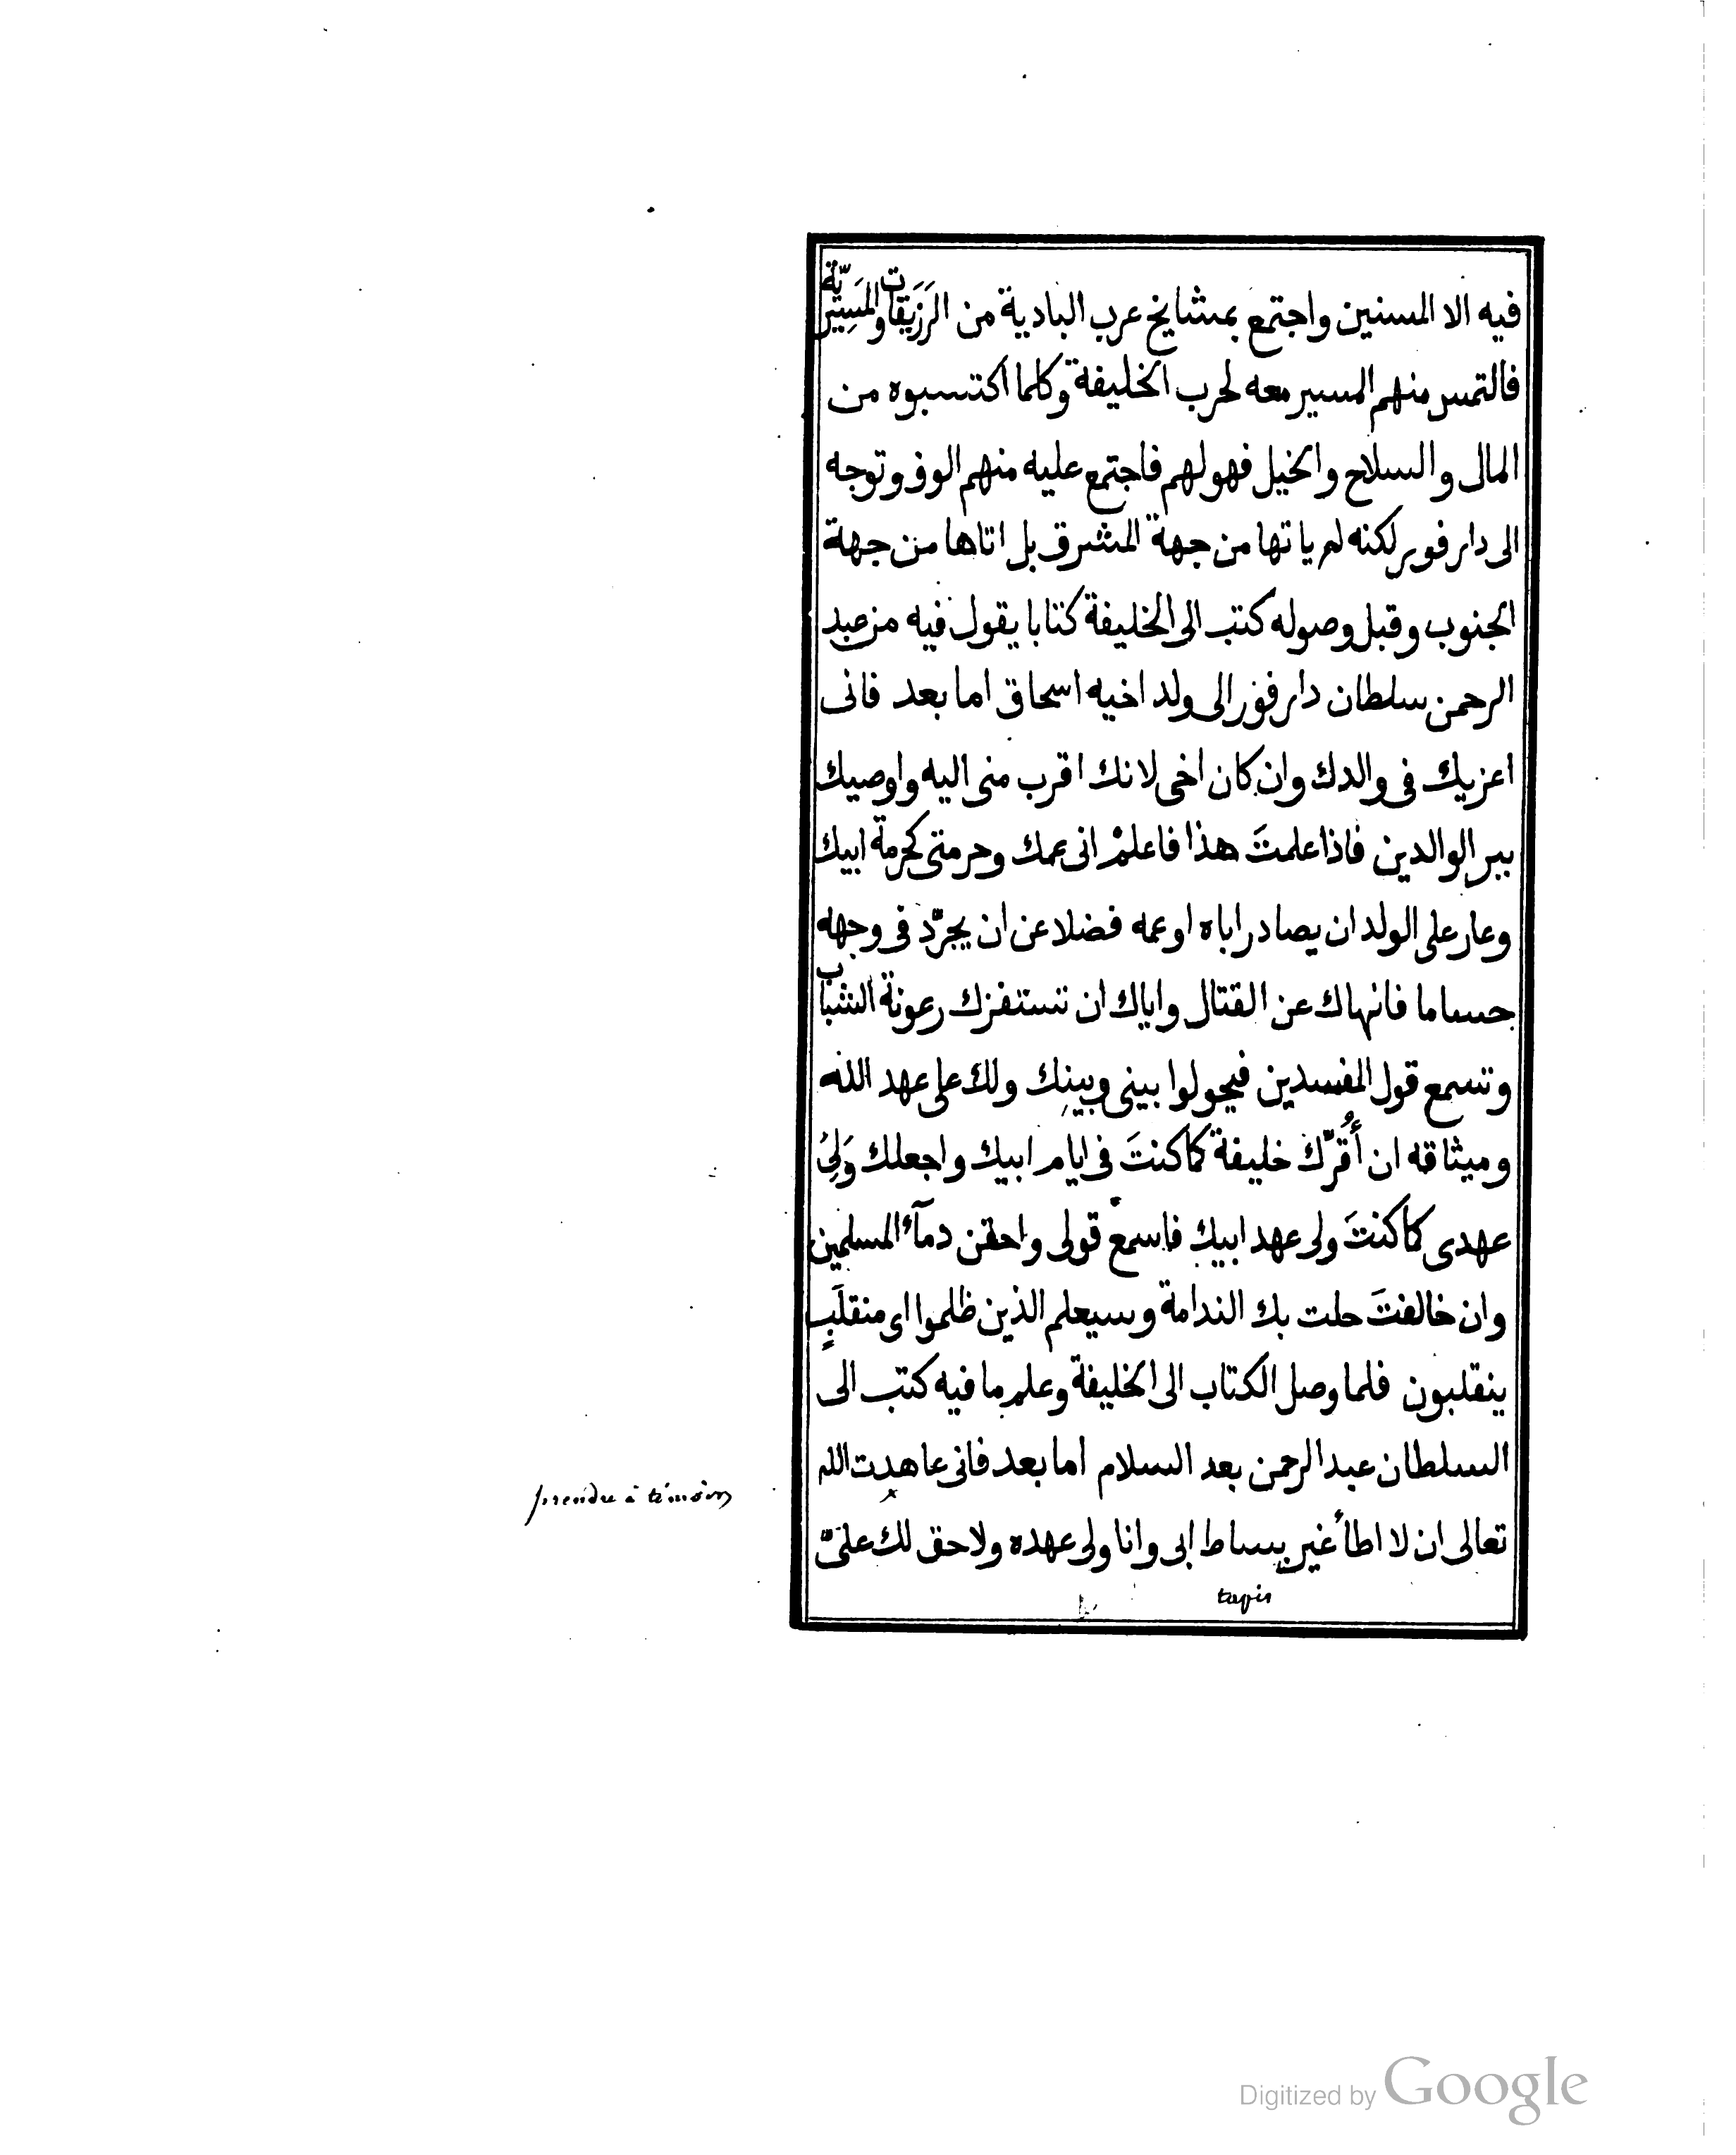 فيه الا المسنين واجتمع بمشايخ عرب البادية من الرَزَيقات والمَسِيرّية
فالتمس منهم المسير معه لحرب الخليفة وكلما اكتسبوه من
المال والسلاح والخيل فهو لهم فاجتمع عليه منهم الوف وتوجه
الى دار فور لكنه لم ياتها من جهة المشرق بل اتاها من جهة
الجنوب وقبل وصوله كتب الى الخليفة كتابا يقول فيه من عبد
الرحمن سلطان دار فور الى ولد اخيه اسحاق اما بعد فانى
اعزيك فى والدك وان كان اخى لانك اقرب منى اليه واوصيك
ببر الوالدين فاذا علمتَ هذا فاعلمْ انى عمك وحرمتى كحرمة ابيك
وعار على الولد ان يصادر اباه او عمه فضلا عن ان يجرّد فى وجهه
حساما فانهاك عن القتال واياك ان تستفزك رعونة الشباب
وتسمع قول المفسدين فيحولوا بينى وبينك ولك على عهد الله
وميثاقه ان أُقرّك خليفة كما كنتَ فى ايام ابيك واجعلك وَلِىُ
عهدى كما كنتَ ولى عهد ابيك فاسمعْ قولى واحقن دمآء المسلمين
وان خالفتَ حلت بك الندامة وسيعلم الذين ظلموا اى منقلَبٍ
ينقلبون فلما وصل الكتاب الى الخليفة وعلم ما فيه كتب الى
السلطان عبد الرحمن بعد السلام اما بعد فانى عاهدت الله
prendre à témoin
تعالى ان لا اطأ غير بساط ابى وانا ولى عهده ولا حق لك علىّ
tapis
Digitized by Google